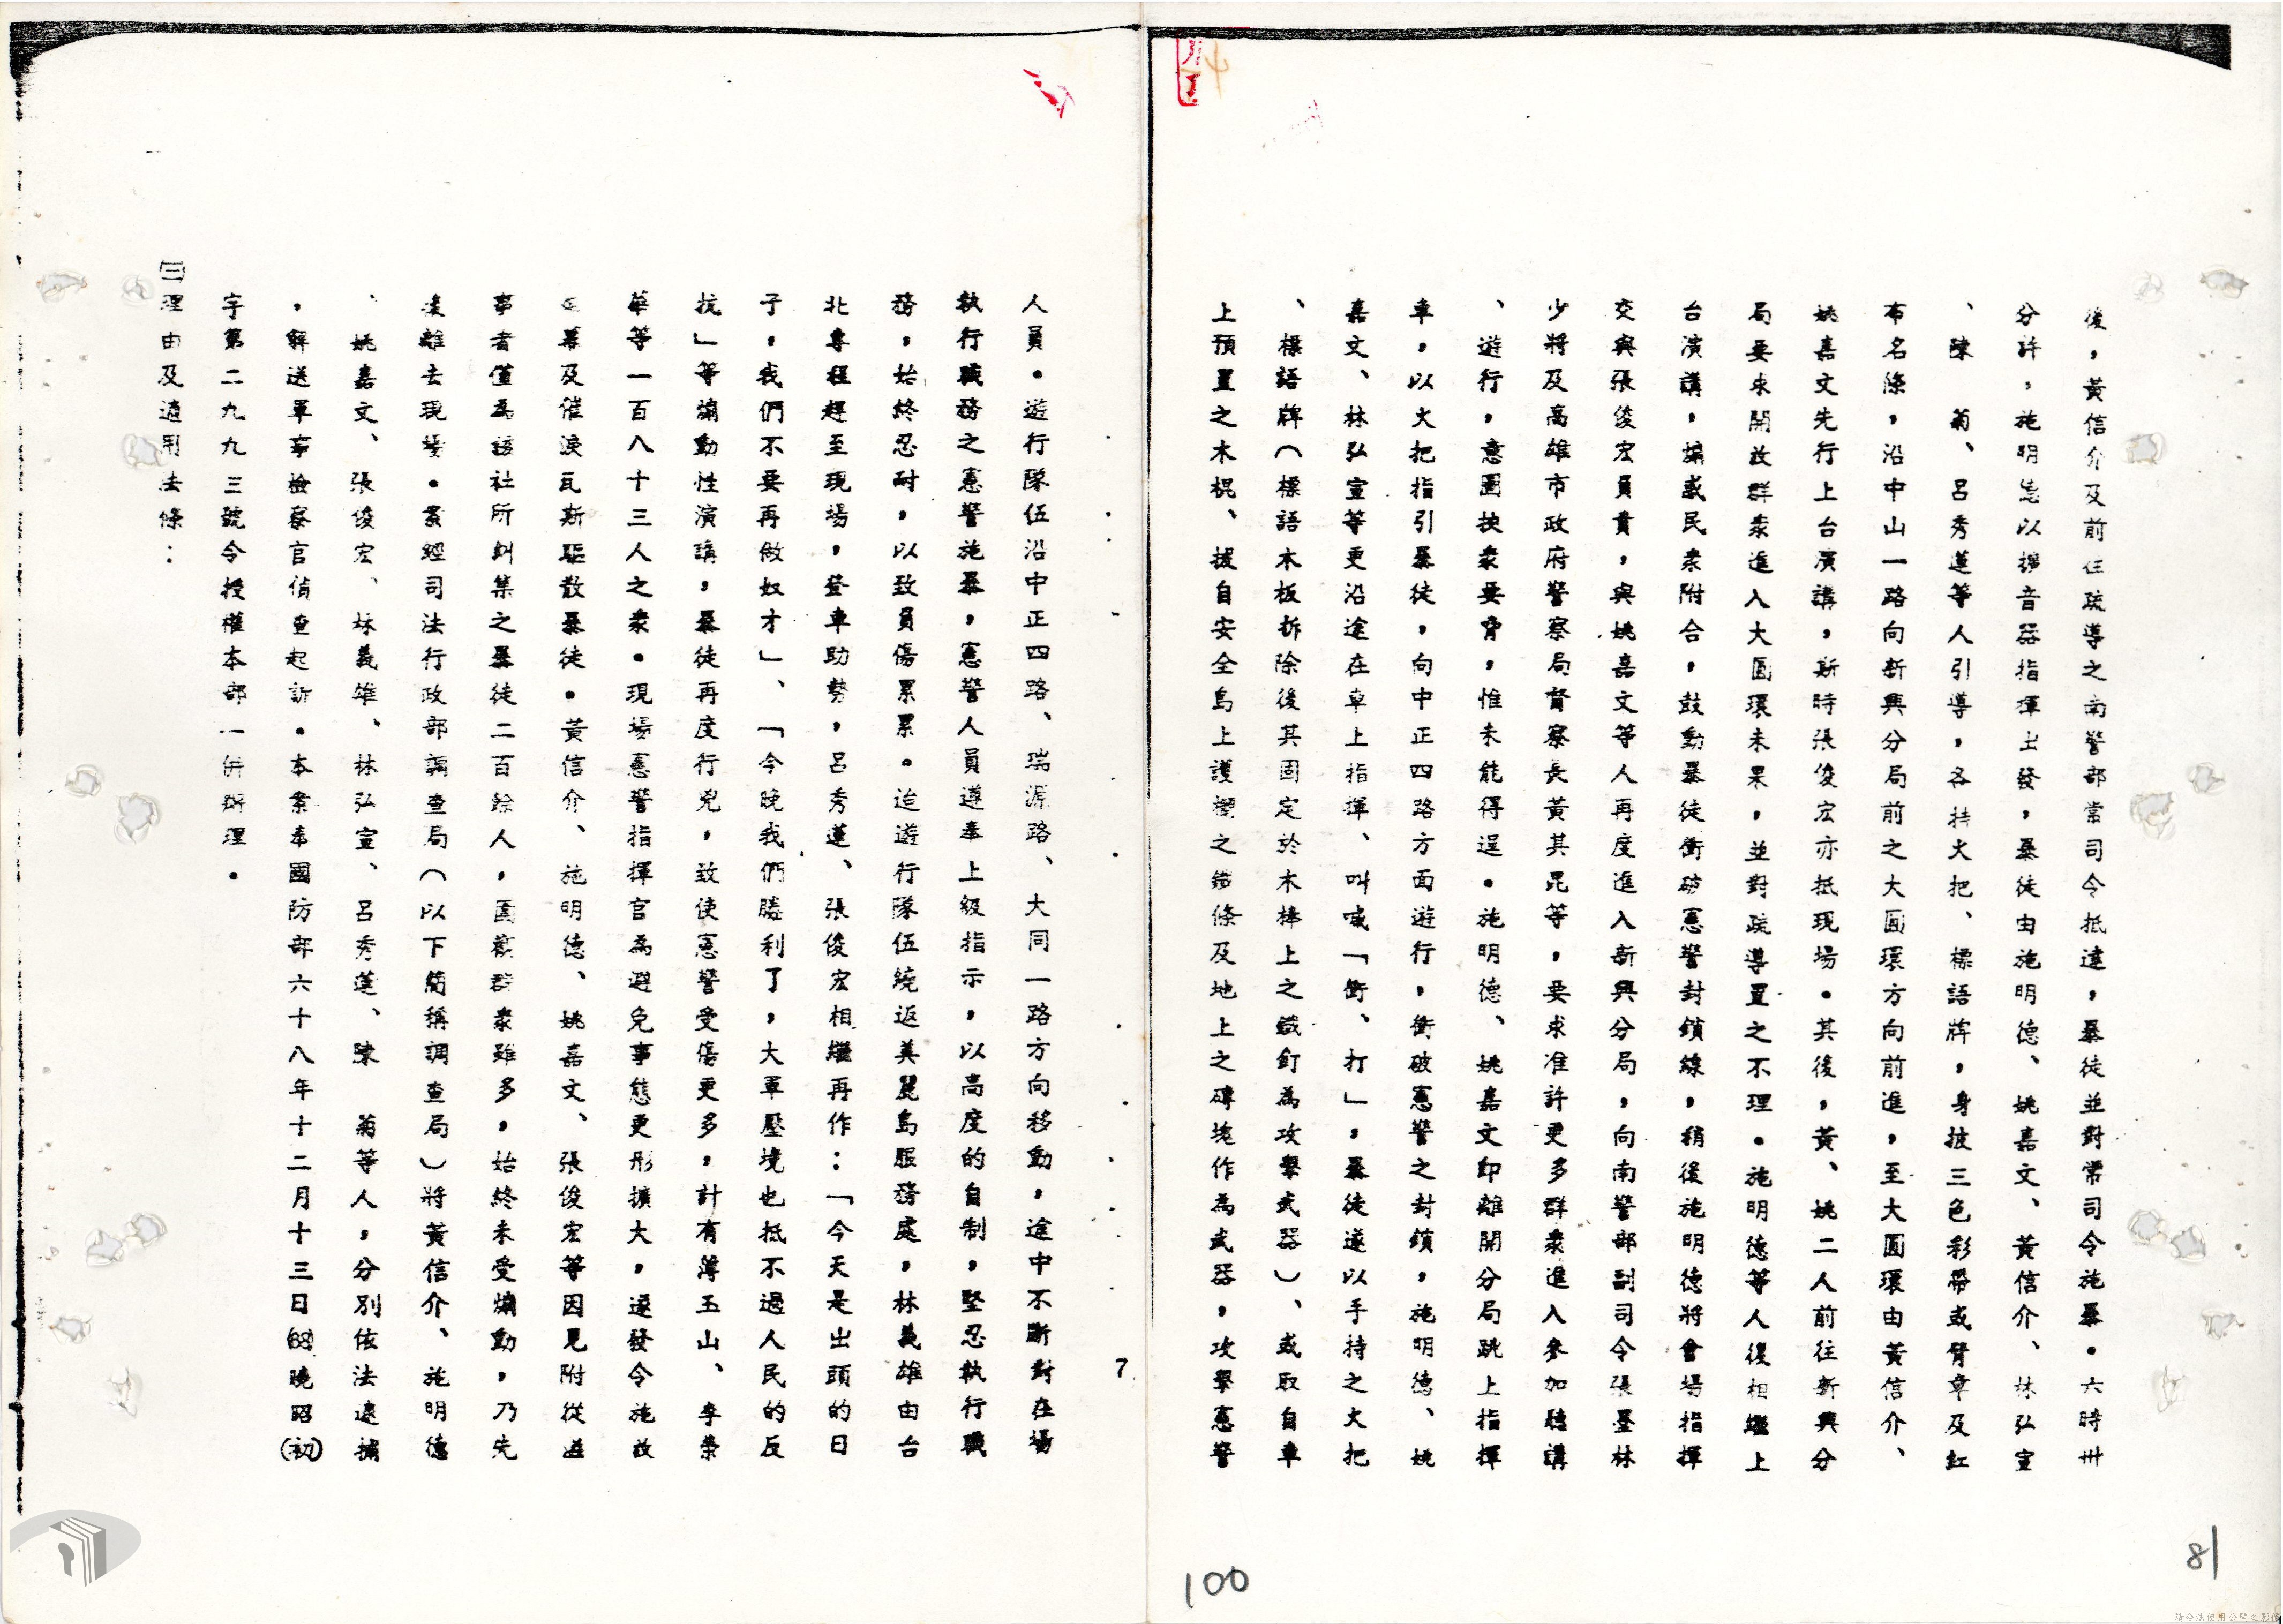 後，黃信介及前往疏導之南警部常司令抵達，暴徒並對常司令施暴。六時卅
分許，施明德以擴音器指揮出發，暴徒由施明德、姚嘉文、黃信介、林弘宣
、陳　菊、呂秀蓮等人引導，各持火把、標語牌，身披三色彩帶或臂章及紅
布名條，沿中山一路向新興分局前之大圓環方向前進，至大圓環由黃信介、
姚嘉文先行上台演講，斯時張俊宏亦抵現場。其後，黃、姚二人前往新興分
局要求開放群衆進入大圓環未果，並對疏導置之不理。施明德等人復相繼上
台演講，煽惑民衆附合，鼓動暴徒衝破憲警封鎖線，稍後施明德將會場指揮
交與張俊宏負責，與姚嘉文等人再度進入新興分局，向南警部副司令張墨林
少將及高雄市政府警察局督察長黃其昆等，要求准許更多群衆進入參加聽講
、遊行，意圖挾衆要脅，惟未能得逞。施明德、姚嘉文即離開分局跳上指揮
車，以火把指引暴徒，向中正四路方面遊行，衝破憲警之封鎖，施明德、姚
嘉文、林弘宣等更沿途在車上指揮、叫喊「衝、打」，暴徒遂以手持之火把
、標語牌（標語木板拆除後其固定於木棒上之鐵釘為攻擊武器）、或取自車
上預置之木棍、拔自安全島上護欄之鐵條及地上之磚塊作為武器，攻擊憲警
7
人員。遊行隊伍沿中正四路、瑞源路、大同一路方向移動，途中不斷對在場
執行職務之憲警施暴，憲警人員遵奉上級指示，以高度的自制，堅忍執行職
務，始終忍耐，以致員傷累累。迨遊行隊伍繞返美麗島服務處，林義雄由台
北專程趕至現場，登車助勢，呂秀蓮、張俊宏相繼再作：「今天是出頭的日
子，我們不要再做奴才」、「今晚我們勝利了，大軍壓境也抵不過人民的反
抗」等煽動性演講，暴徒再度行兇，致使憲警受傷更多，計有薄玉山、李榮
華等一百八十三人之衆。現場憲警指揮官為避免事態更形擴大，遂發令施放
煙幕及催淚瓦斯驅散暴徒。黃信介、施明德、姚嘉文、張俊宏等因見附從滋
事者僅為該社所糾集之暴徒二百餘人，圍觀群衆雖多，始終未受煽動，乃先
後離去現場。案經司法行政部調查局（以下簡稱調查局）將黃信介、施明德
、姚嘉文、張俊宏、林義雄、林弘宣、呂秀蓮、陳　菊等人，分別依法逮捕
，解送軍事檢察官偵查起訴。本案奉國防部六十八年十二月十三日(68)曉昭(初)
字第二九九三號令授權本部一併辦理。
㈢理由及適用法條：
100
81
請合法使用公開之影像